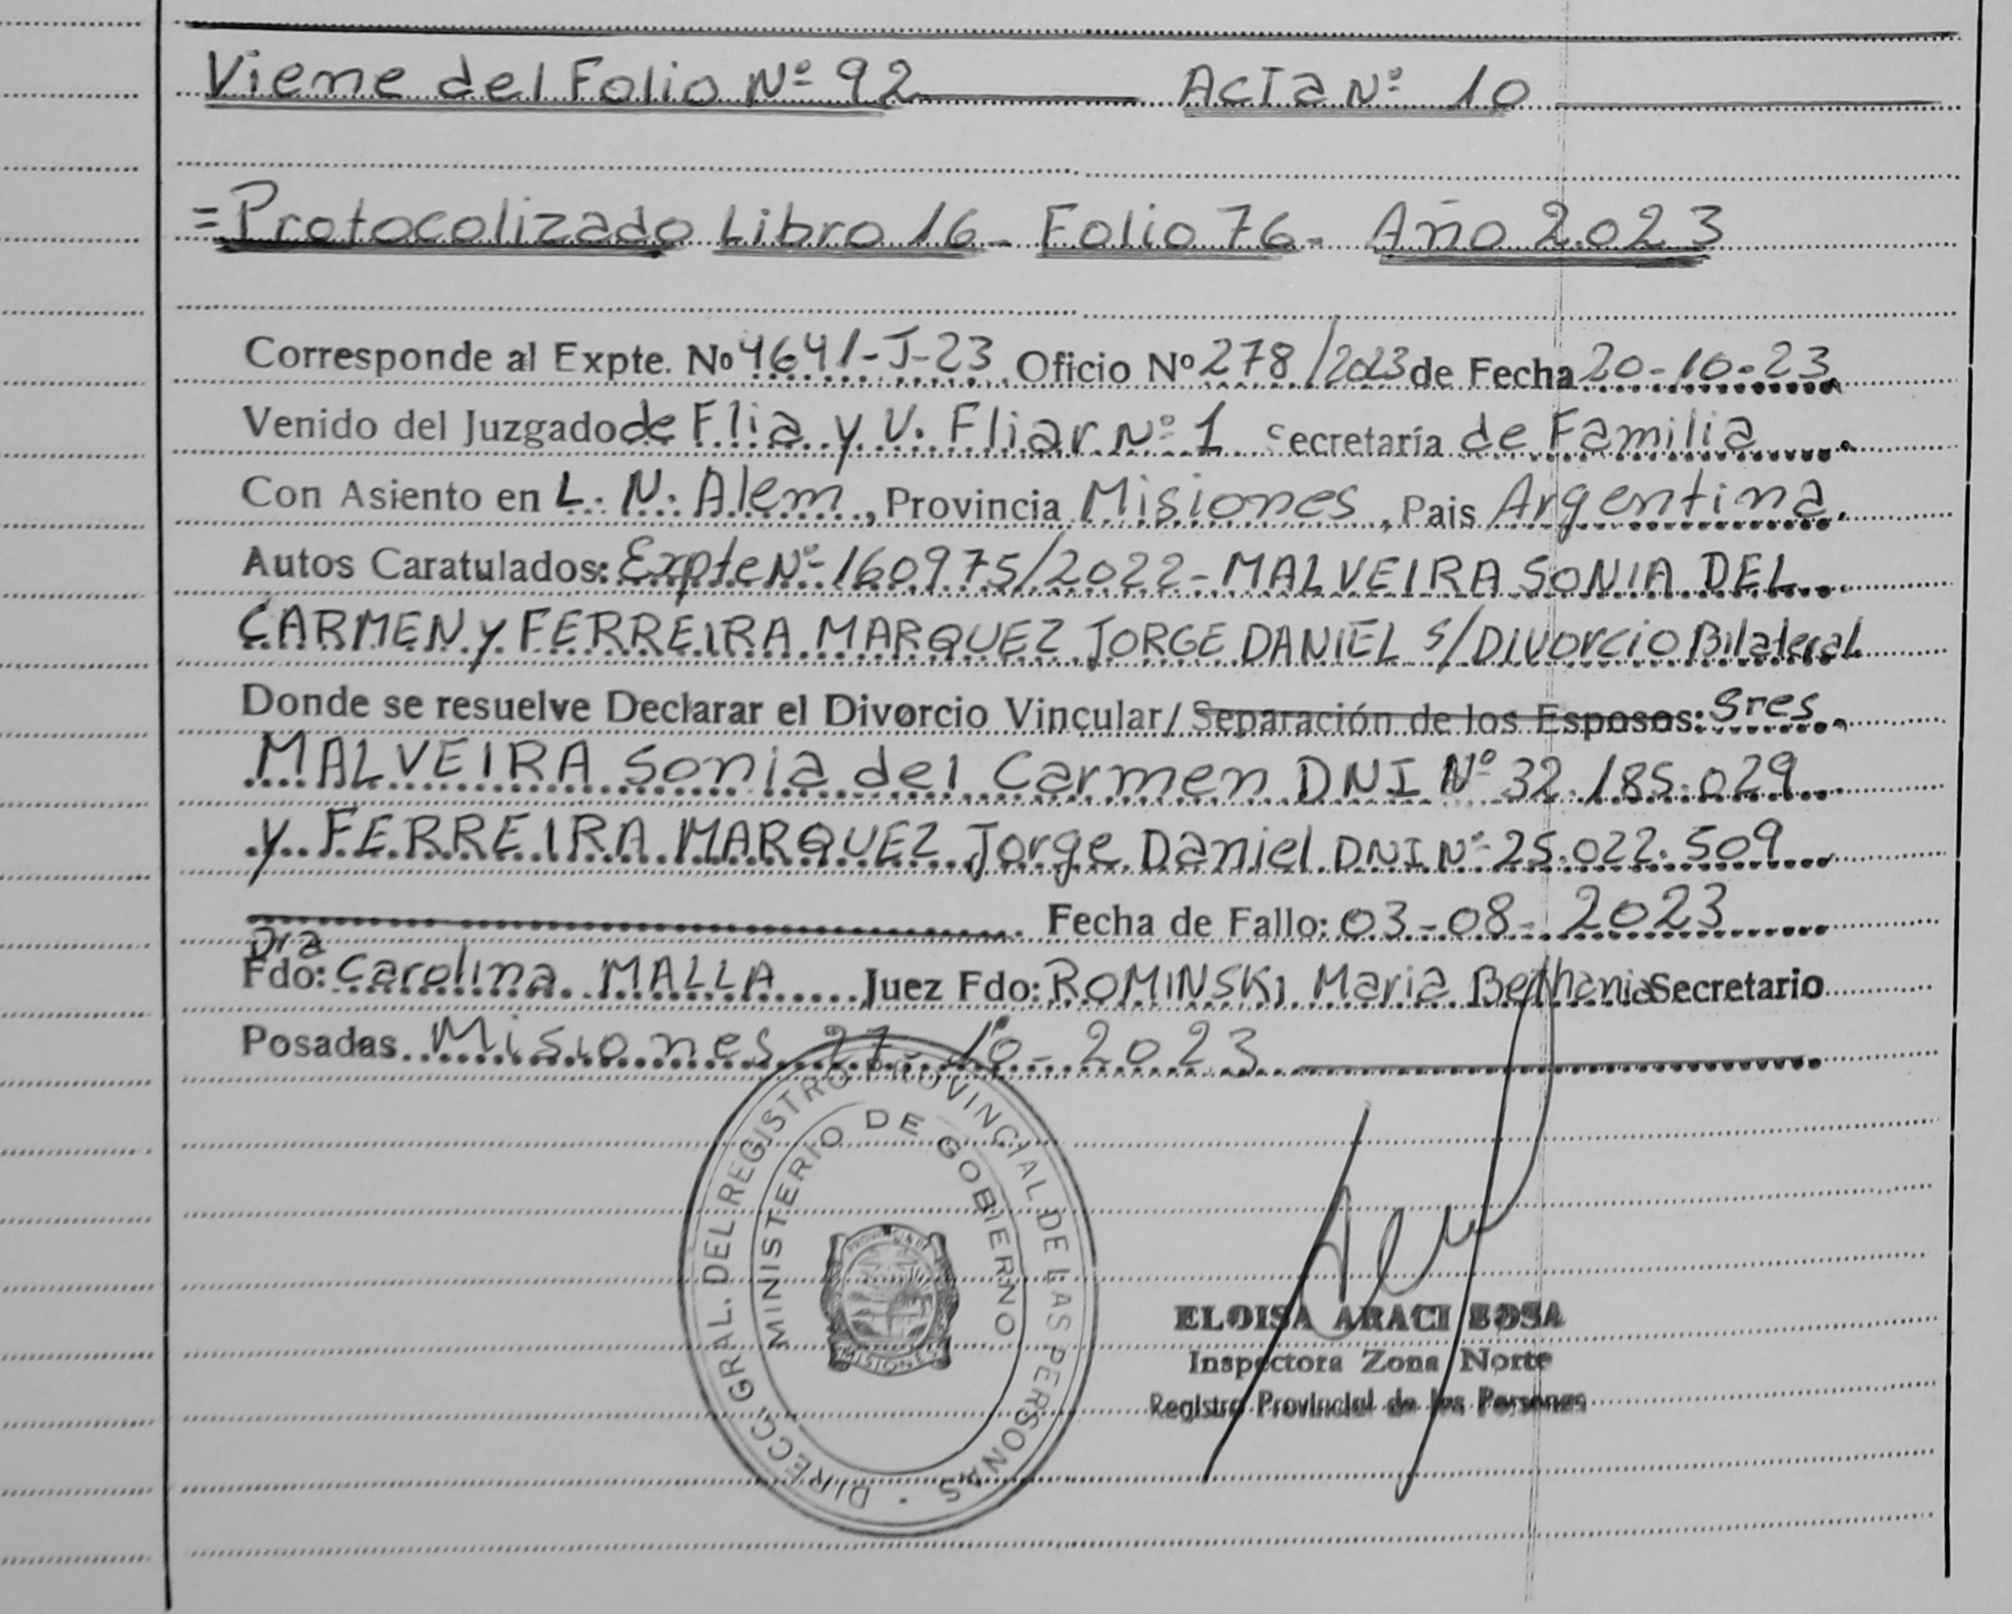 Viene del Folio Nº 92 Acta Nº 10
=Protocolizado Libro 16- Folio 76- Año 2.023
Corresponde al Expte. Nº 4641-J-23 Oficio Nº 278/2023 de Fecha 20-10-23
Venido del Juzgado de Flia y V. Fliar Nº 1 Secretaría de Familia
Con Asiento en L. N. Alem, Provincia Misiones, Pais Argentina.
Autos Caratulados: Expte Nº 160975/2022- MALVEIRA SONIA DEL
CARMEN y FERREIRA MARQUEZ JORGE DANIEL s/DIVORCIO Bilateral
Donde se resuelve Declarar el Divorcio Vincular/ Separación de los Esposos: Sres
MALVEIRA Sonia del Carmen DNI Nº 32.185.029
y FERREIRA MARQUEZ Jorge Daniel DNI Nº 25.022.509
Fecha de Fallo: 03-08-2023
Dra
Fdo: Carolina MALLA Juez Fdo: ROMINSKI Maria Bethania Secretario
Posadas Misiones 27-10-2023
DIRECC. GRAL. DEL REGISTRO PROVINCIAL DE LAS PERSONAS
MINISTERIO DE GOBIERNO
PROVINCIA DE
MISIONES
ELOISA ARACI SOSA
Inspectora Zona Norte
Registro Provincial de las Personas